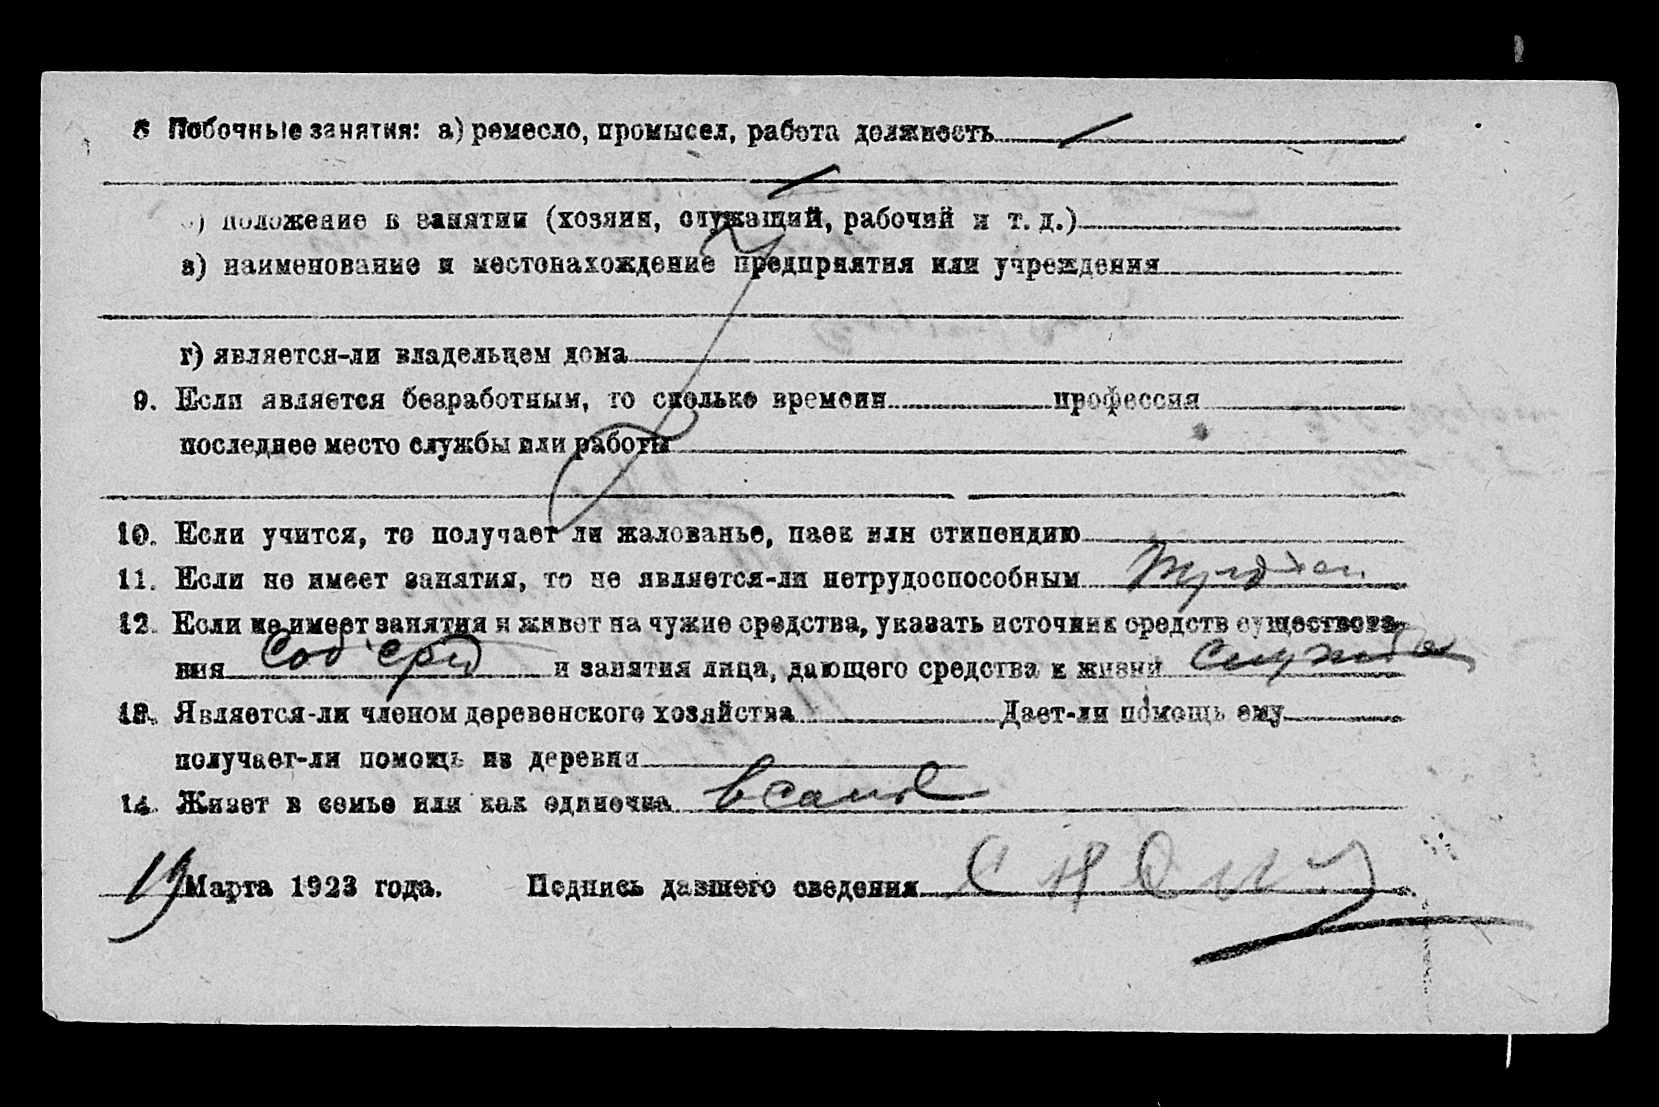 8 Побочные занятия: а) ремесло, промысел, работа должность
б) положение в занятии (хозяин, служащий, рабочий и т. д.)
в) наименование и местонахождение предприятия или учреждения
г) является-ли владельцем дома
9. Если является безработным, то сколько времени профессия
последнее место службы или работы
10. Если учится, то получает ли жалованье, паек или стипендию
11. Если не имеет занятия, то не является-ли нетрудоспособным
12. Если не имеет занятия и живет на чужие средства, указать источник средств существова-
ния и занятия лица, дающего средства к жизни служба
13. Является-ли членом деревенского хозяйства Дает-ли помощь ему
получает-ли помощь из деревни
14. Живет в семье или как одиночка
19 Марта 1923 года. Подпись давшего сведения